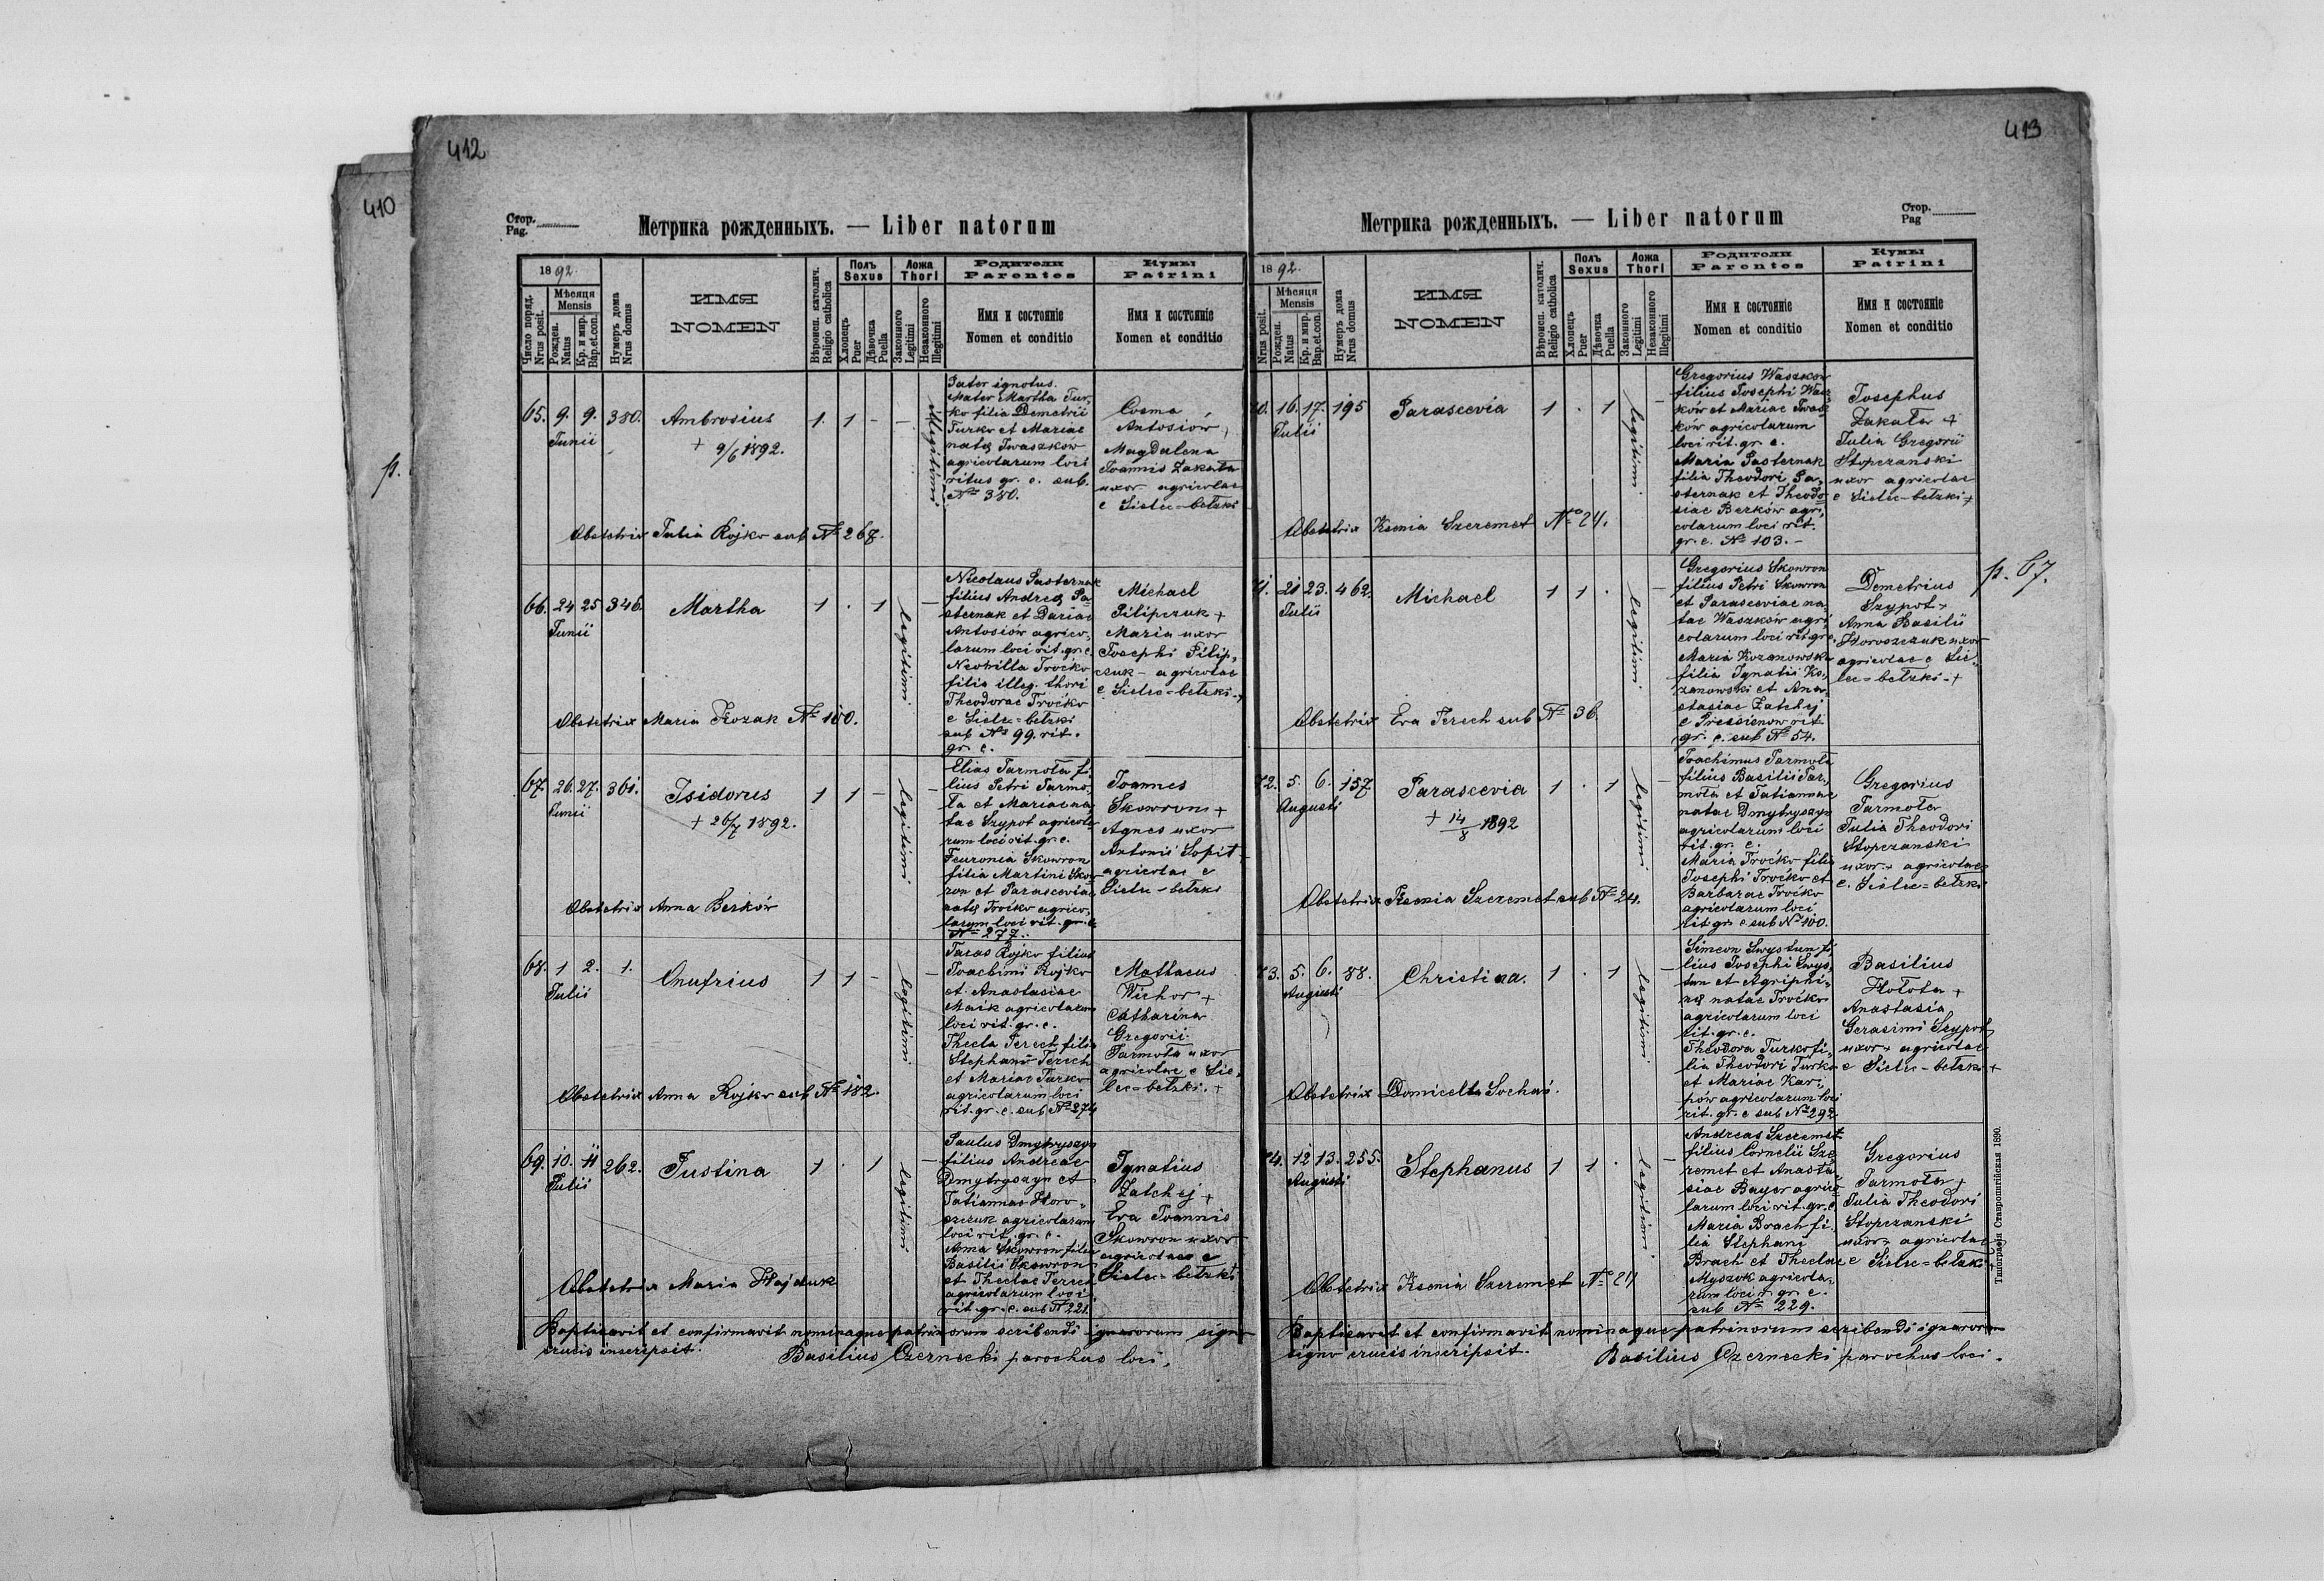 412
410
p.
Стор.
Pag.
Метрика рожденныхъ. — Liber natorum
1892.
Число поряд.
Nrus posit.
Мѣсяця
Mensis
Рожден.
Natus
Кр. и мир.
Bap. et con.
Нумеръ дома
Nrus domus
ИМЯ
NOMEN
Вѣроисп. католич.
Religio catholica
Полъ
Sexus
Хлопецъ
Puer
Дѣвочка
Puella
Ложа
Thori
Законного
Legitimi
Незаконного
Illegitimi
Родители
Parentes
Имя и состоянїе
Nomen et conditio
Кумы
Patrini
Имя и состоянїе
Nomen et conditio
65. 9. 9. 380. Ambrosius 1. 1 - -
Junii
+ 9/6 1892.
illegitimi
Pater ignotus.
Mater Martha Tur,
ko filia Demetrii
Turko et Mariae
natą Iwaszków
agricolarum loci
ritus gr. c. sub.
No 380.
Cosma
Antosiów
Magdalena
Joannis Zakała
uxor agricolae
e Sielec-bełzki
Obstetrix Julia Rojko sub No 267.
66. 24 25 346. Martha 1 . 1 -
Junii
legitimi
Nicolaus Pasternak
filius Andreą Pa-
sternak et Dariae
Antosiów agrico,
larum loci rit. gr. c.
Neonilla Troćko
filia illeg. thori
Theodorae Troćko
e Sielec-bełzki
sub No 99. rit.
gr. c.
Michael
Pilipczuk +
Maria uxor
Josephi Pilip,
czuk - agricolae
e Sielec-bełzki - +
Obstetrix Maria Kozak No 160.
67. 26. 27. 361. Isidorus 1 1 - -
Junii
+ 26/7 1892.
legitimi
Elias Jarmoła fi,
lius Petri Jarmo,
ła et Mariae na
tae Szypot agricola
rum loci rit. gr. c.
Feuronia Skowron
filia Martini Skow
ron et Parasceviae
natą Troćko agrico,
larum loci rit. gr. c.
No 277.
Joannes
Skowron +
Agnes uxor
Antonii Sopit
agricolae e
Sielec-bełzki
Obstetrix Anna Berków
68. 1 2. 1. Onufrius 1 1 - -
Julii
legitimi
Taras Rojko filius
Joachimi Rojko
et Anastasiae
Maik agricolarum
loci rit. gr. c.
Thecla Terech filia
Stephani Terech
et Mariae Turko
agricolarum loci
rit. gr. c. sub No 274
Mathaeus
Wichor +
Catharina
Gregorii
Jarmoła uxor
agricolae e Sie,
lec-bełzki. +
Obstetrix Anna Rojko sub No 182.
69. 10. 11 262. Justina 1 . 1 -
Julii
legitimi
Paulus Dmytryszyn
filius Andreae
Dmytryszyn et
Tatiannae Horo,
szczuk agricolarum
loci rit. gr. c.
Anna Skowron filia
Basilii Skowron
et Theclae Terech
agricolarum loci
rit. gr. c. sub No 221.
Ignatius
Zatchej +
Eva Joannis
Skowron uxor
agricolae e
Sielec-bełzki +
Obstetrix Maria Hajduk
Baptisavit et confirmavit nominaque patrinorum scribendi ignarorum signo
crucis inscripsit. Basilius Czernecki parochus loci.
413
Стор.
Pag
Метрика рожденныхъ. — Liber natorum
1892.
Nrus posit.
Мѣсяця
Mensis
Рожден.
Natus
Кр. и мир.
Bap. et con.
Нумеръ дома
Nrus domus
ИМЯ
NOMEN
Вѣроисп. католич.
Religio catholica
Полъ
Sexus
Хлопецъ
Puer
Дѣвочка
Puella
Ложа
Thori
Законного
Legitimi
Незаконного
Illegitimi
Родители
Parentes
Имя и состоянїе
Nomen et conditio
Кумы
Patrini
Имя и состоянїе
Nomen et conditio
70. 16. 17. 195 Parascevia 1 . 1 -
Julii
legitimi
Gregorius Waszków
filius Josephi Wasz
ków et Mariae Iwasz
ków agricolarum
loci rit. gr. c.
Maria Pasternak
filia Theodori Pa,
sternak et Theodo
siae Berków agri,
colarum loci rit.
gr. c. No 103. -
Josephus
Zakała +
Julia Gregorii
Stopczanski
uxor agricolae
e Sielec-bełzki +
Obstetrix Ksenia Szeremet No 24.
71. 21 23. 462. Michael 1 1 . -
Julii
legitimi
Gregorius Skowron
filius Petri Skowron
et Parasceviae na,
tae Waszków agri
colarum loci rit. gr. c.
Maria Kozanowska
filia Ignatii Ko,
zanowski et Ana,
stasiae Zatchej
e Pressienow rit.
gr. c. sub No 54.
Demetrius
Szypot +
Anna Basilii
Horoszczuk uxor
agricolae e Sie,
lec-bełzki - +
p. 67.
Obstetrix Eva Terech sub No 36.
72. 5. 6. 157 Parascevia 1 . 1
Augusti
+ 14/8 1892
legitimi
Joachimus Jarmoła
filius Basilii Jar,
moła et Tatiannae
natae Dmytryszyn
agricolarum loci
rit. gr. c.
Maria Troćko filia
Josephi Troćko et
Barbarae Troćko
agricolarum loci
rit. gr. c. sub No 100.
Gregorius
Jarmoła
Julia Theodori
Stopczanski
uxor + agricolae
e. Sielec-bełzki
Obstetrix Ksenia Szeremet sub No 24.
73. 5. 6. 88. Christina. 1 . 1 -
Augusti
legitimi
Simeon Swystun fi,
lius Josephi Swys,
tun et Agriphi,
ną natae Troćko
agricolarum loci
rit. gr. c.
Theodora Turko fi,
lia Theodori Turko
et Mariae Kar,
pów agricolarum loci
rit. gr. c sub No 292
Basilius
Hołota +
Anastasia
Gerasimi Szypot
uxor agricolae
e Sielec-bełzki +
Obstetrix Domicella Sochań.
74. 12 13. 255. Stephanus 1 1 . -
Augusti
legitimi
Andreas Szeremet
filius Cornelii Sze
remet et Anasta
siae Bayer agrico
larum loci rit. gr. c.
Maria Brach fi,
lia Stephani
Brach et Theclae
Myszok agricola,
rum loci r. gr. c.
sub No 229.
Gregorius
Jarmoła +
Julia Theodori
Stopczanski
uxor agricolae
e Sielec-bełzki
Obstetrix Ksenia Szeremet No 24
Baptisavit et confirmavit nominaque patrinorum scribendi ignarorum
signo crucis inscripsit. Basilius Czernecki parochus loci.
Типографія Ставропигійская 1890.